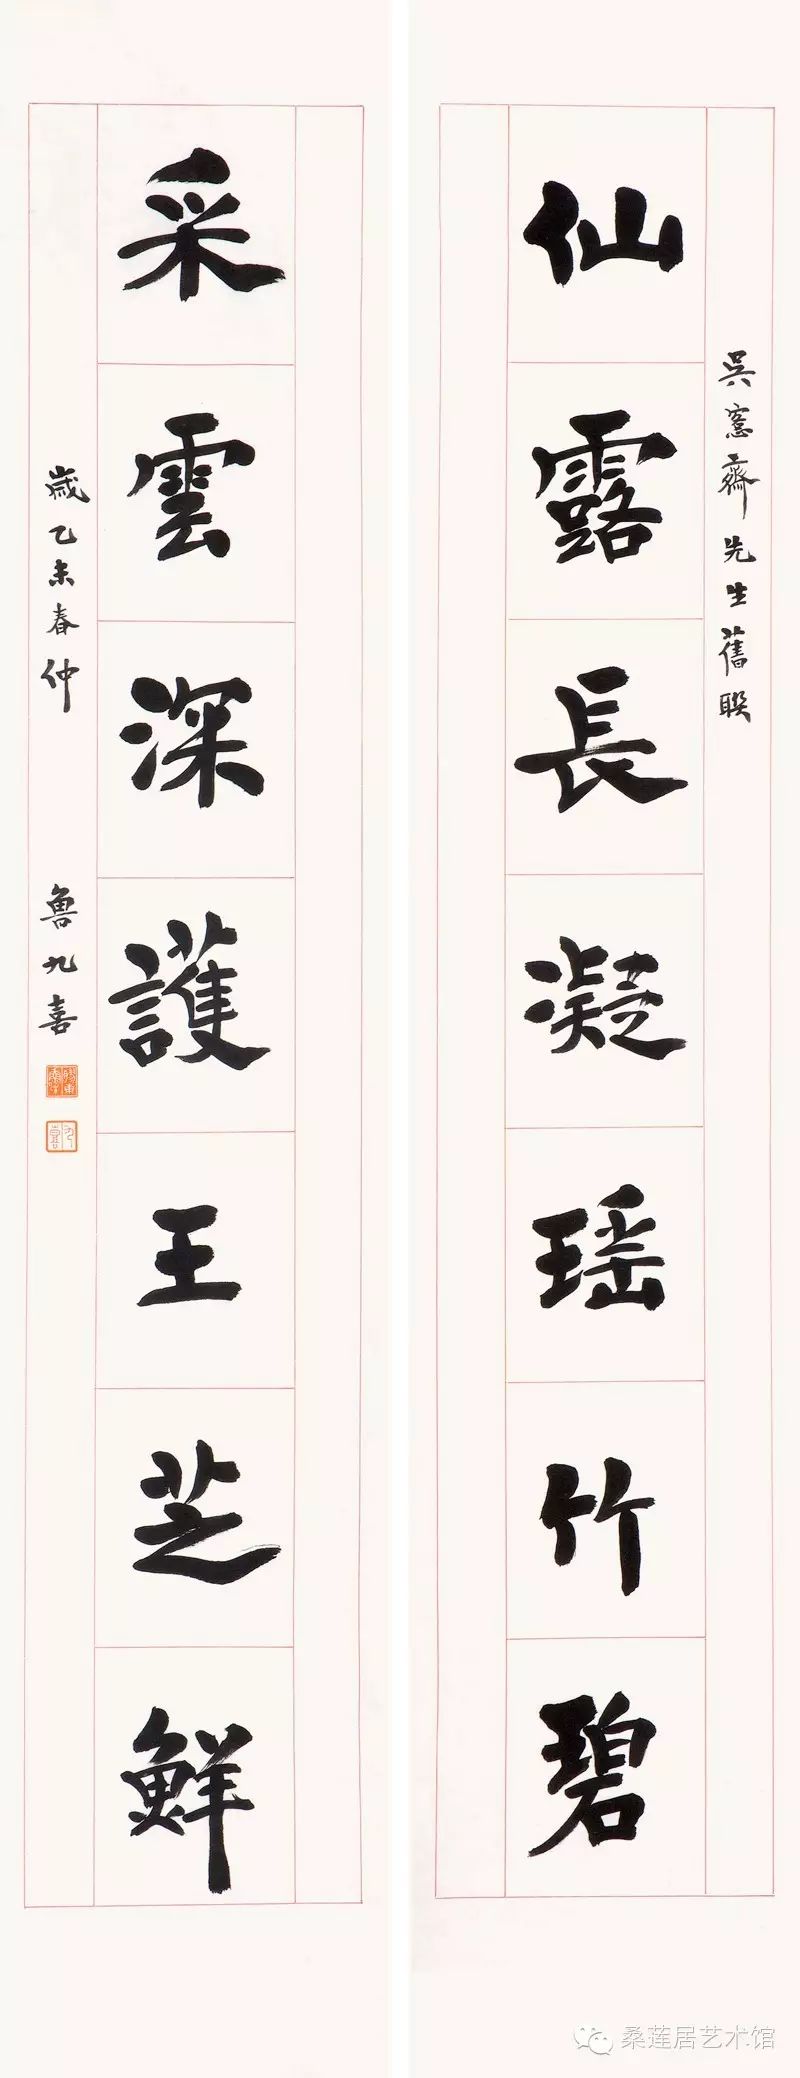 吳愙齋先生舊聯
仙露長凝瑶竹碧
采雲深護王芝鮮
歲乙未春仲
魯九喜
九喜
桑莲居艺术馆